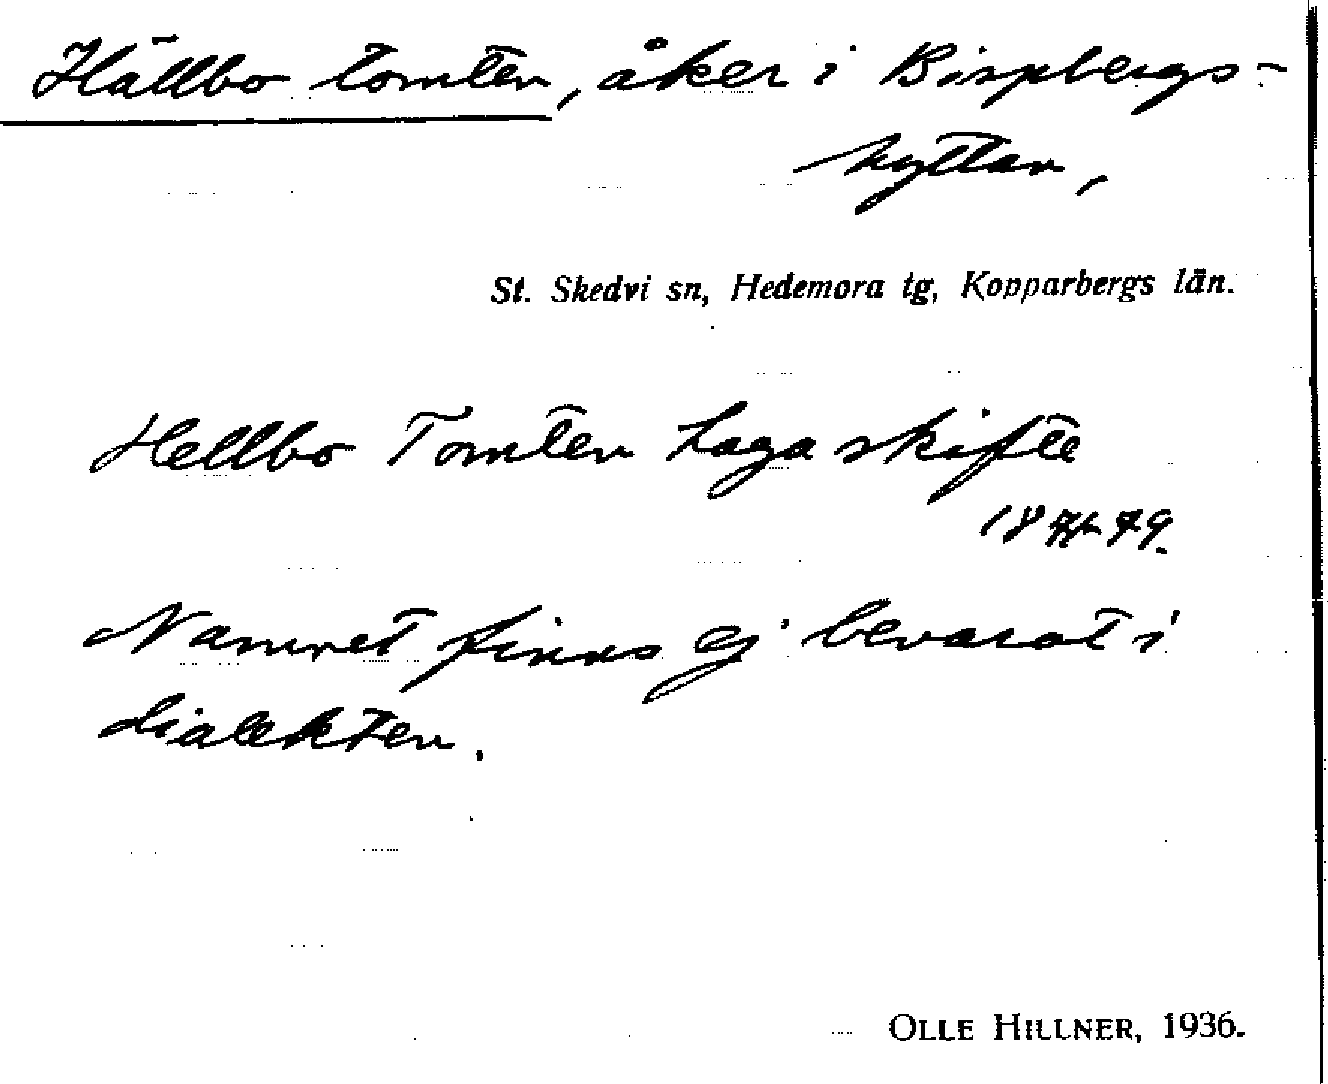 Hällbo tomten, åker i Bispbergs-
hyttan,
St. Skedvi sn, Hedemora tg, Kopparbergs län.
Hellbo Tomten Laga skifte
Namnet finns ej bevarat i
dialekten.
OLLE HILLNER, 1936.